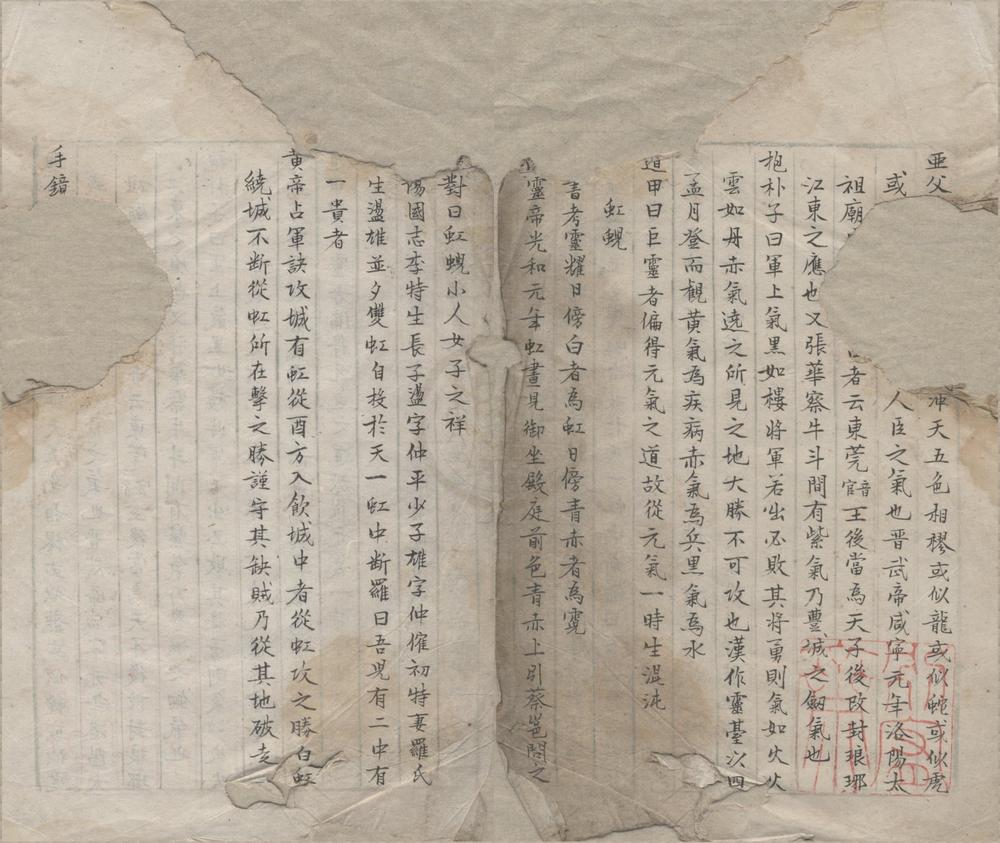 亜父 冲天五色相樛或似龍或似蛇或似虎
或 人臣之氣也晋武帝咸寧元年洛陽太
祖廟 者云東莞音官王後當為天子後改封琅琊
江東之應也又張華察牛斗間有紫氣乃豊城之劔氣也
抱朴子曰軍上氣黒如樓將軍若出必敗其将勇則氣如火火
雲如丹赤氣遶之所見之地大勝不可攻也漢作靈臺以四
孟月登而觀黄氣為疾病赤氣為兵黒氣為水
遁甲曰巨靈者偏得元氣之道故從元氣一時生混沌
虹蜺
書考靈耀日傍白者為虹日傍青赤者為霓
靈帝光和元年虹晝見御坐殿庭前色青赤上引蔡邕問之
對曰虹蜺小人女子之祥
陽國志李特生長子盪字仲平少子雄字仲㒞初特妻羅氏
生盪雄並夕雙虹自投於天一虹中断羅曰吾児有二中有
一貴者
黄帝占軍訣攻城有虹從酉方入飲城中者從虹攻之勝白虹
繞城不断從虹所在擊之勝謹守其缺賊乃從其地破走
手鐕